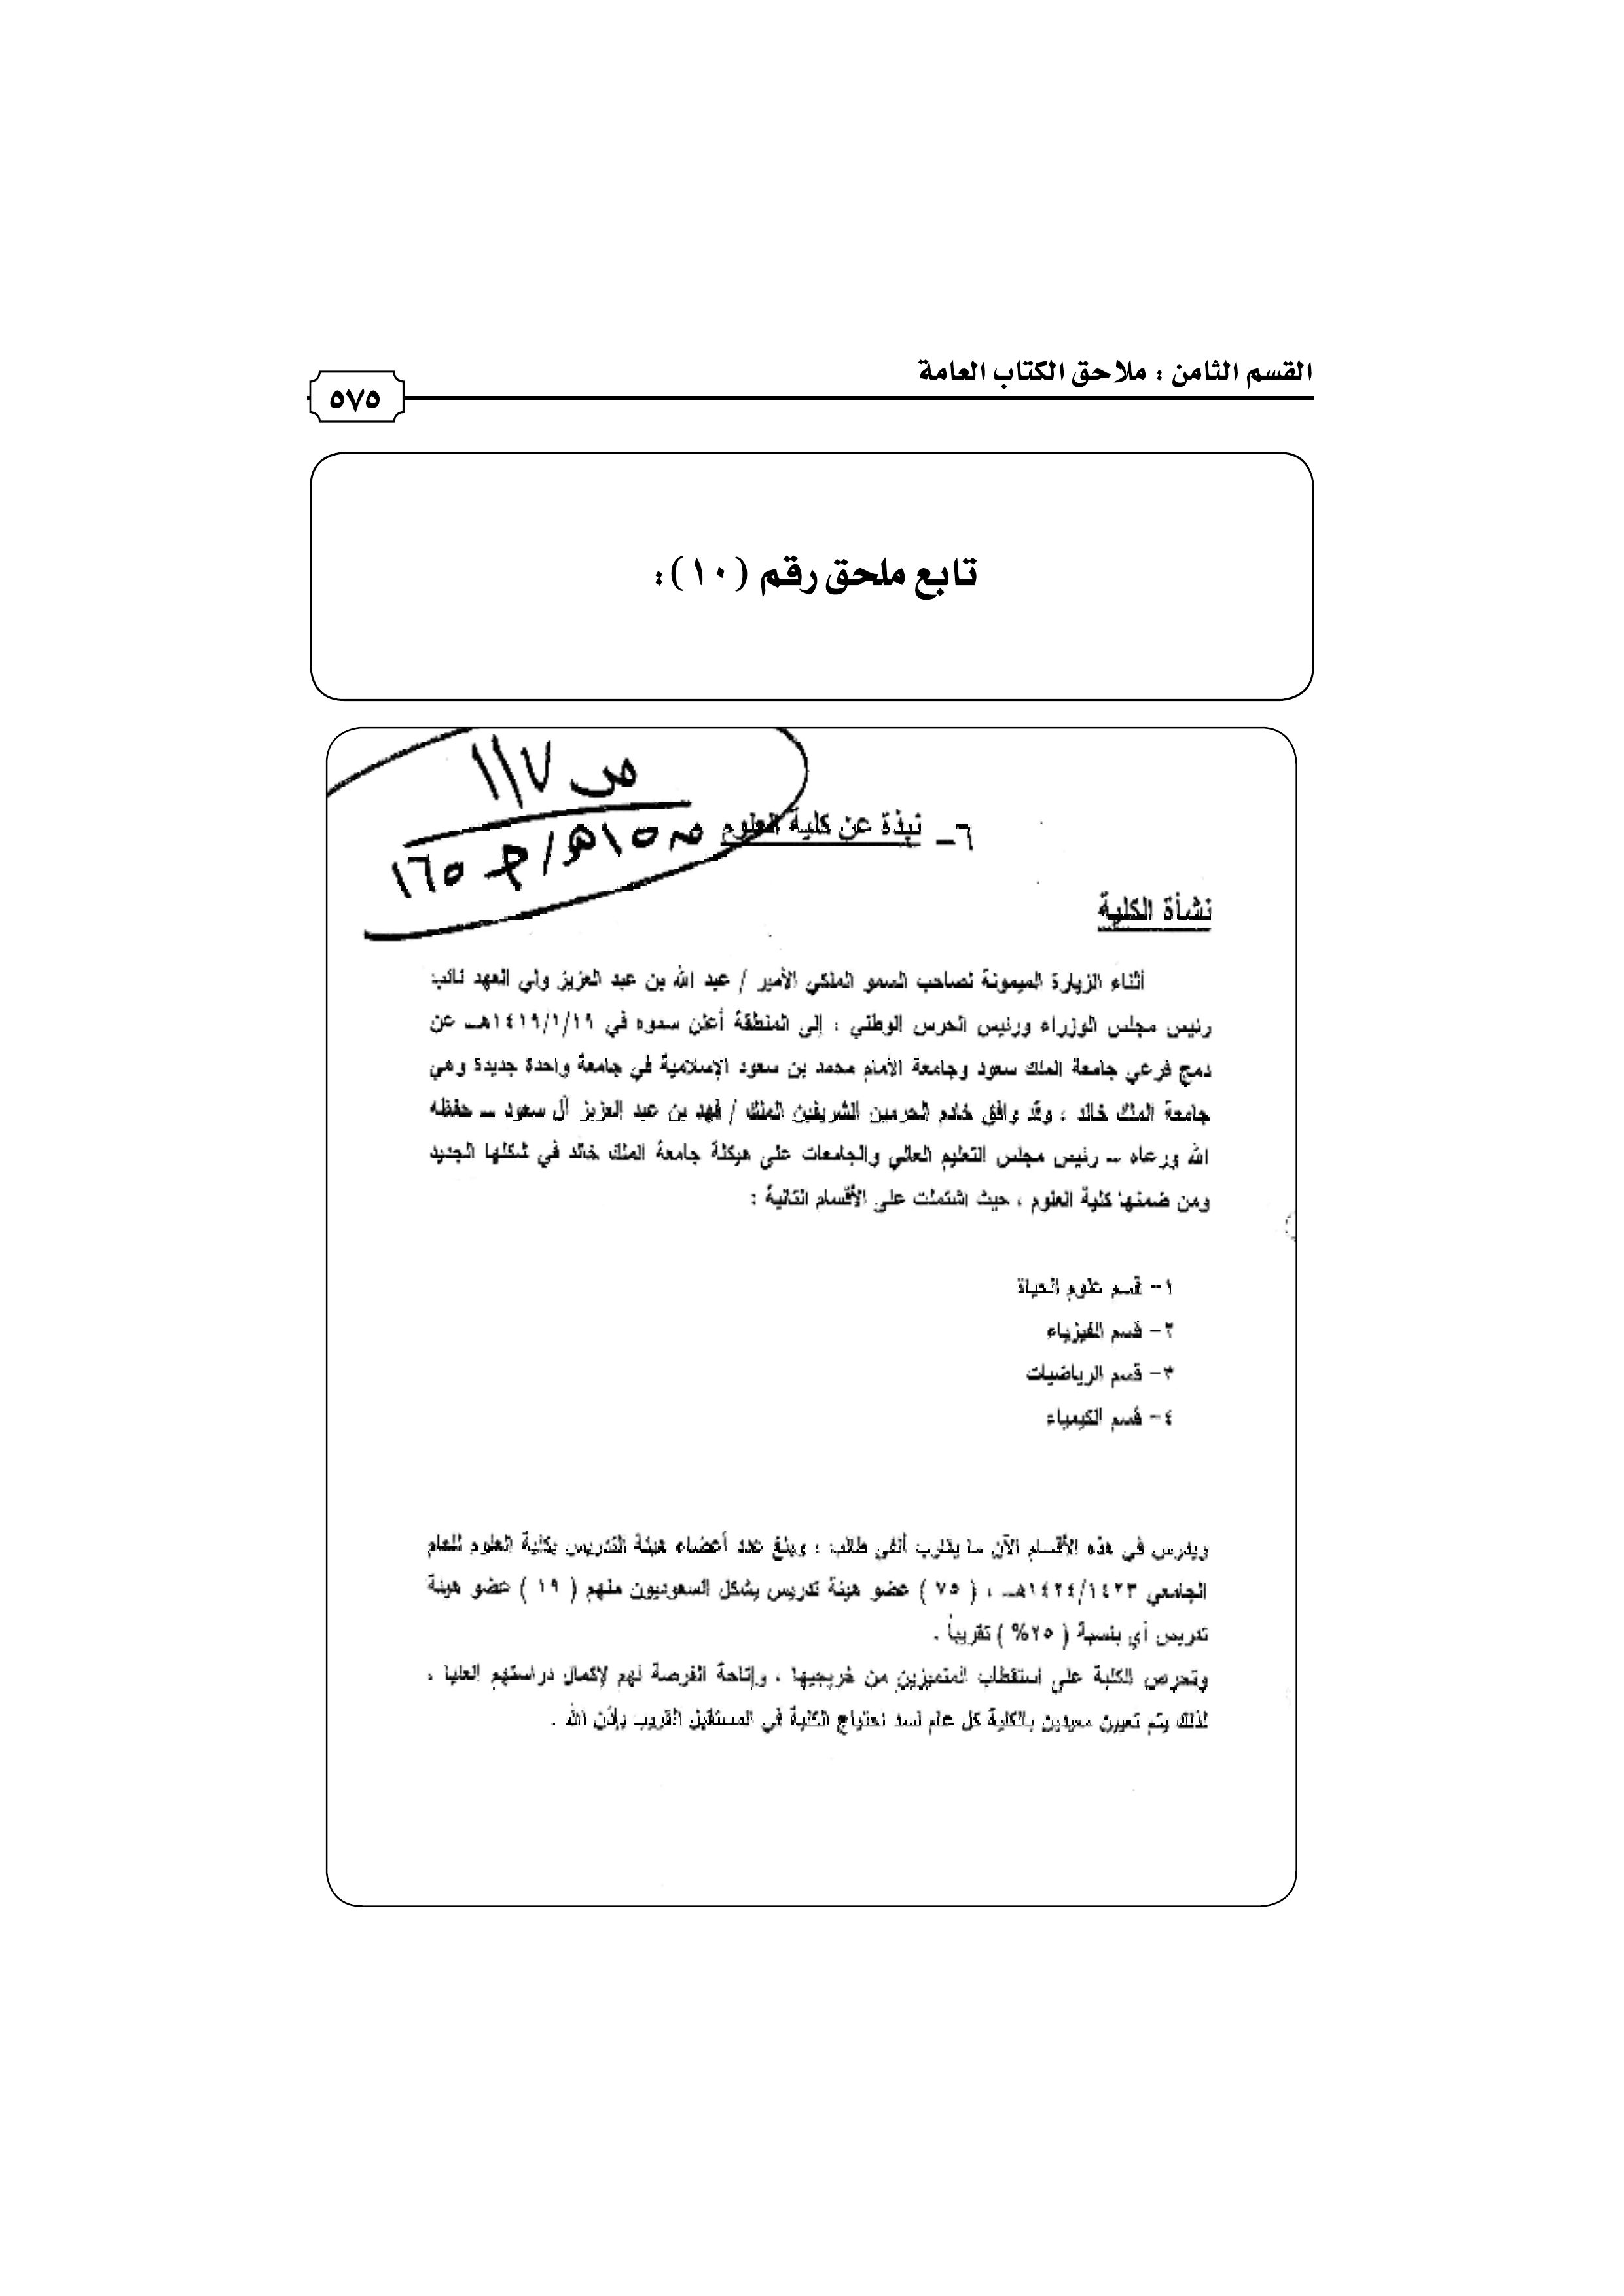 القسم الثامن : ملاحق الكتاب العامة
٥٧٥
تابع ملحق رقم (١٠):
ص ١١٧
٦- نبذة عن كلية العلوم
نشأة الكلية
أثناء الزيارة الميمونة لصاحب السمو الملكي الأمير / عبد الله بن عبد العزيز ولي العهد نائب
رئيس مجلس الوزراء ورئيس الحرس الوطني ، إلى المنطقة أعلن سموه في ١٤١٩/١/١٩هـ عن
دمج فرعي جامعة الملك سعود وجامعة الأمام محمد بن سعود الإسلامية في جامعة واحدة جديدة وهي
جامعة الملك خالد ، وقد وافق خادم الحرمين الشريفين الملك / فهد بن عبد العزيز آل سعود – حفظه
الله ورعاه – رئيس مجلس التعليم العالي والجامعات على هيكلة جامعة الملك خالد في شكلها الجديد
ومن ضمنها كلية العلوم ، حيث اشتملت على الأقسام التالية :
١- قسم علوم الحياة
٢- قسم الفيزياء
٣- قسم الرياضيات
٤- قسم الكيمياء
ويدرس في هذه الأقسام الآن ما يقارب ألفي طالب ، ويبلغ عدد أعضاء هيئة التدريس بكلية العلوم للعام
الجامعي ١٤٢٤/١٤٢٣هـ ، ( ٧٥ ) عضو هيئة تدريس يشكل السعوديون منهم ( ١٩ ) عضو هيئة
تدريس أي بنسبة ( ٢٥% ) تقريباً .
وتحرص الكلية على استقطاب المتميزين من خريجيها ، وإتاحة الفرصة لهم لإكمال دراستهم العليا ،
لذلك يتم تعيين معيدين بالكلية كل عام لسد احتياج الكلية في المستقبل القريب بإذن الله .